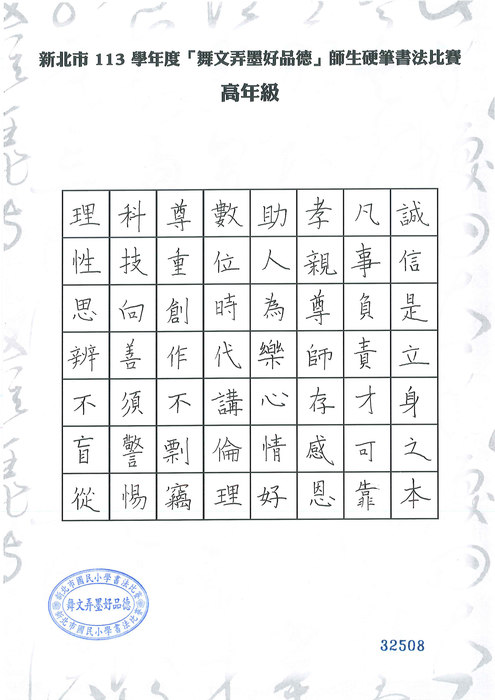 新北市 113 學年度「舞文弄墨好品德」師生硬筆書法比賽
高年級
誠信是立身之本
凡事負責才可靠
孝親尊師存感恩
助人為樂心情好
數位時代講倫理
尊重創作不剽竊
科技向善須警惕
理性思辨不盲從
新北市國民小學書法比賽
舞文弄墨好品德
新北市國民小學書法比賽
32508